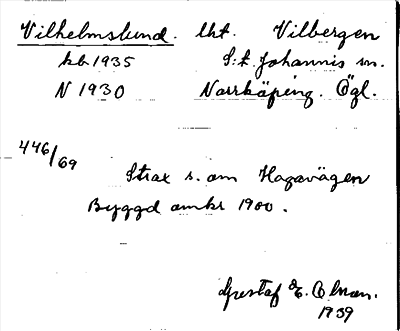 Vilhelmslund. lht. Vilbergen
kb 1935 S:t Johannis sn.
N 1930 Norrköping. Ögl.
446/69
Strax s. om Hagavägen
Byggd omkr 1900.
Gustaf E. Olman.
1939